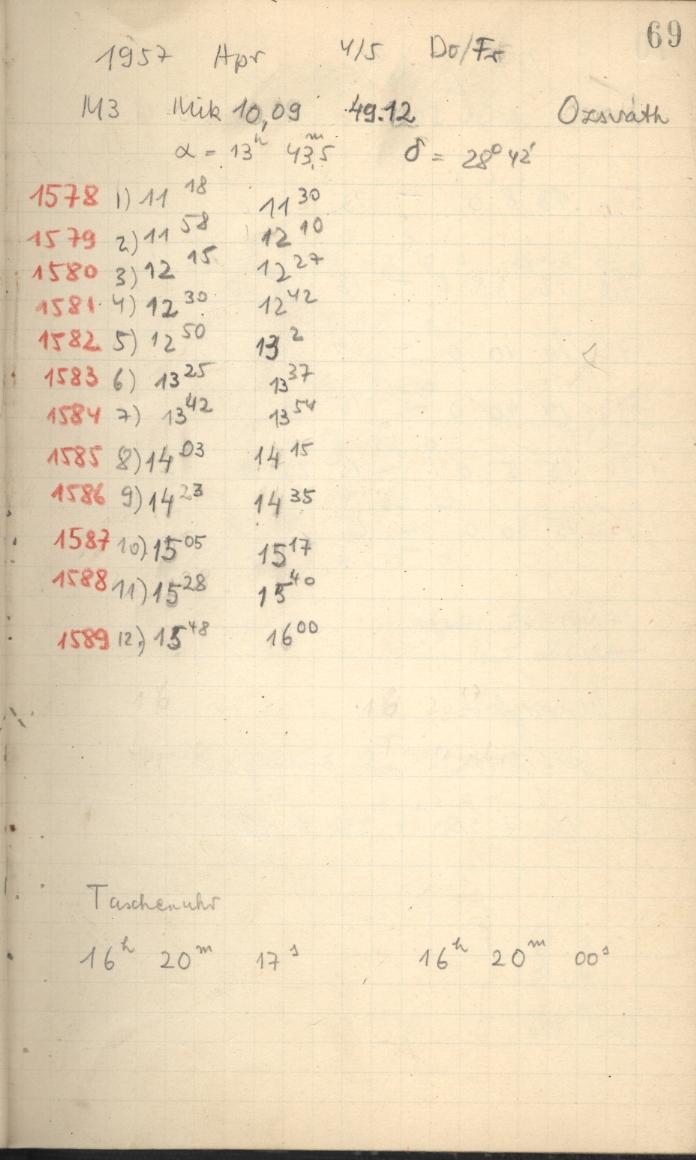 69
1957 Apr 4/5 Do/Fr
M3 Mik 10,09 49.12 Ozsváth
α = 13ʰ 43,5ᵐ δ = 28° 42'
1578 1) 11 18 11 30
1579 2) 11 58 12 10
1580 3) 12 15 12 27
1581 4) 12 30 12 42
1582 5) 12 50 13 2
1583 6) 13 25 13 37
1584 7) 13 42 13 54
1585 8) 14 03 14 15
1586 9) 14 23 14 35
1587 10) 15 05 15 17
1588 11) 15 28 15 40
1589 12) 15 48 16 00
Taschenuhr
16ʰ 20ᵐ 17ˢ 16ʰ 20ᵐ 00ˢ